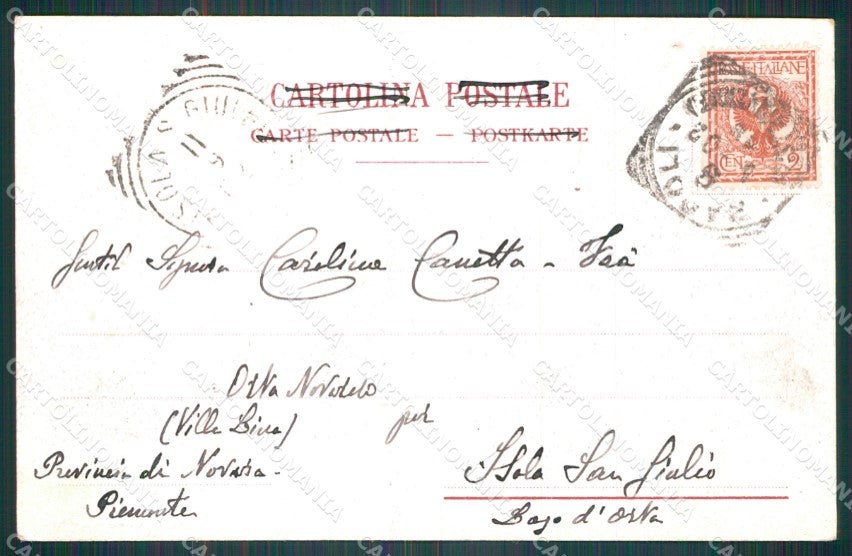 CARTOLINA POSTALE
CARTE POSTALE — POSTKARTE
POSTE ITALIANE
CEN. 2
NAPOLI
ISOLA S. GIULIO
11
Gentil Signora Carolina Canetta - Vaà
Orta Novarese
(Villa Bina)
per
Provincia di Novara -
Isola San Giulio
Piemonte
Lago d'Orta
CARTOLINOMANIA